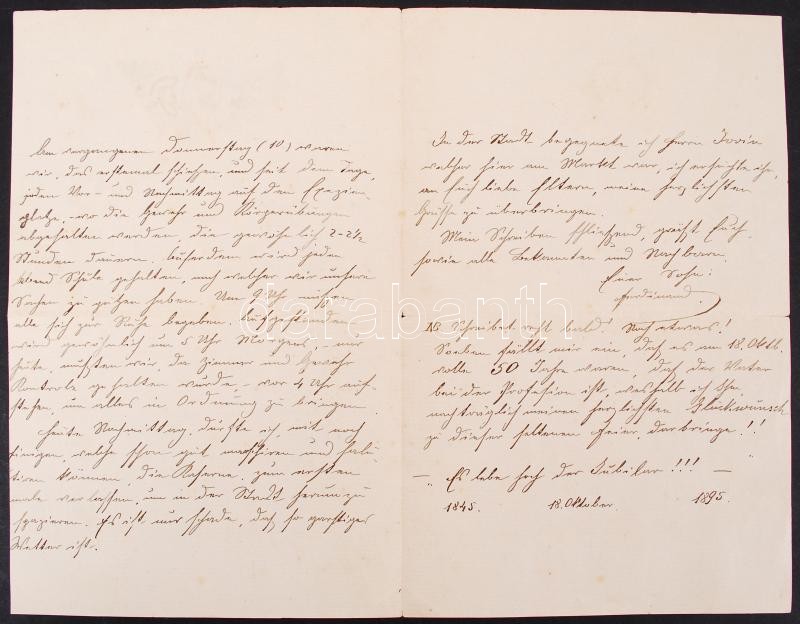 Am vergangenen Donnerstag (10) waren
wir das erstemal schießen, und seit dem Tage,
jeden Vor- und Nachmittag auf den Exezier-
platze, wo die Gewehr und Körperübungen
abgehalten werden die gewöhnlich 2-2½
Stunden dauern. Außerdem wird jeden
Abend Schule gehalten, nach welcher wir unsere
Sachen zu putzen haben. Um 9 Uhr müßen
alle sich zur Ruhe begeben. Aufgestanden
wird gewöhnlich um 5 Uhr Morgens, nur
heute, mußten wir, da Zimmer und Gewehr
Kontrole gehalten wurde, - vor 4 Uhr auf-
stehen, um alles in Ordnung zu bringen.
Heute Nachmittag, durfte ich, mit noch
Einigen, welche schon gut marschiren und salu-
tiren können, die Kaserne, zum ersten
male verlassen, um in der Stadt herumzu
spazieren. Es ist nur schade, daß so garstiges
Wetter ist.
In der Stadt begegnete ich Herrn
welcher hier am Markt war, ich ersuchte ihn,
an Euch liebe Eltern, meine herzlichsten
Grüße zu überbringen.
Mein Schreiben schließend, grüßt Euch
sowie alle Bekannten und Nachbarn.
Euer Sohn:
Ferdinand.
NB Schreibet recht bald! Noch etwas!
Soeben fällt mir ein, daß es am 18. Oktb.
volle 50 Jahre waren, daß der Vater
bei der Profesion ist, weshalb ich Ihm
nachträglich meinen herzlichsten Glückwunsch
zu dieser seltenen Feier darbringe!!
— „Es lebe hoch der Jubilar!!! —"
1845. 18. Oktober. 1895.
darabanth